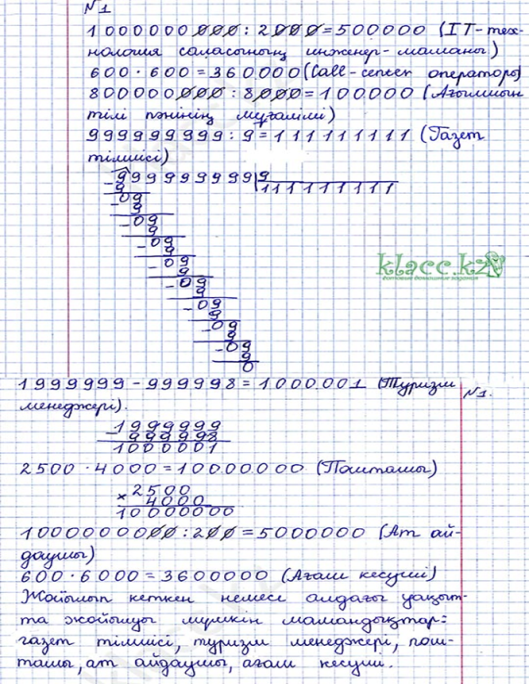 №1
1000000000 : 2000 = 500000 (IT-тех-
нология саласының инженер-маманы)
600 · 600 = 360000 (Call-сенсек операторы)
800000000 : 8000 = 100000 (Ағылшын
тілі пәнінің мұғалімі)
999999999 : 9 = 111111111 (Газет
тілшісі)
999999999 9
-9 111111111
-09
9
-09
9
-09
9
-09
9
-09
9
-09
9
-09
9
-09
9
0
klacc.kz
1999999 - 999998 = 1000001 (Туризм №1.
менеджері).
1999999
- 999998
1000001
2500 · 4000 = 10000000 (Пошташы)
2500
× 4000
10000000
1000000000 : 200 = 5000000 (Ат ай-
даушы)
600 · 6000 = 3600000 (Ағаш кесуші)
Жойылып кеткен немесе алдағы уақыт-
та жойылуы мүмкін мамандықтар:
газет тілшісі, туризм менеджері, пош-
ташы, ат айдаушы, ағаш кесуші.